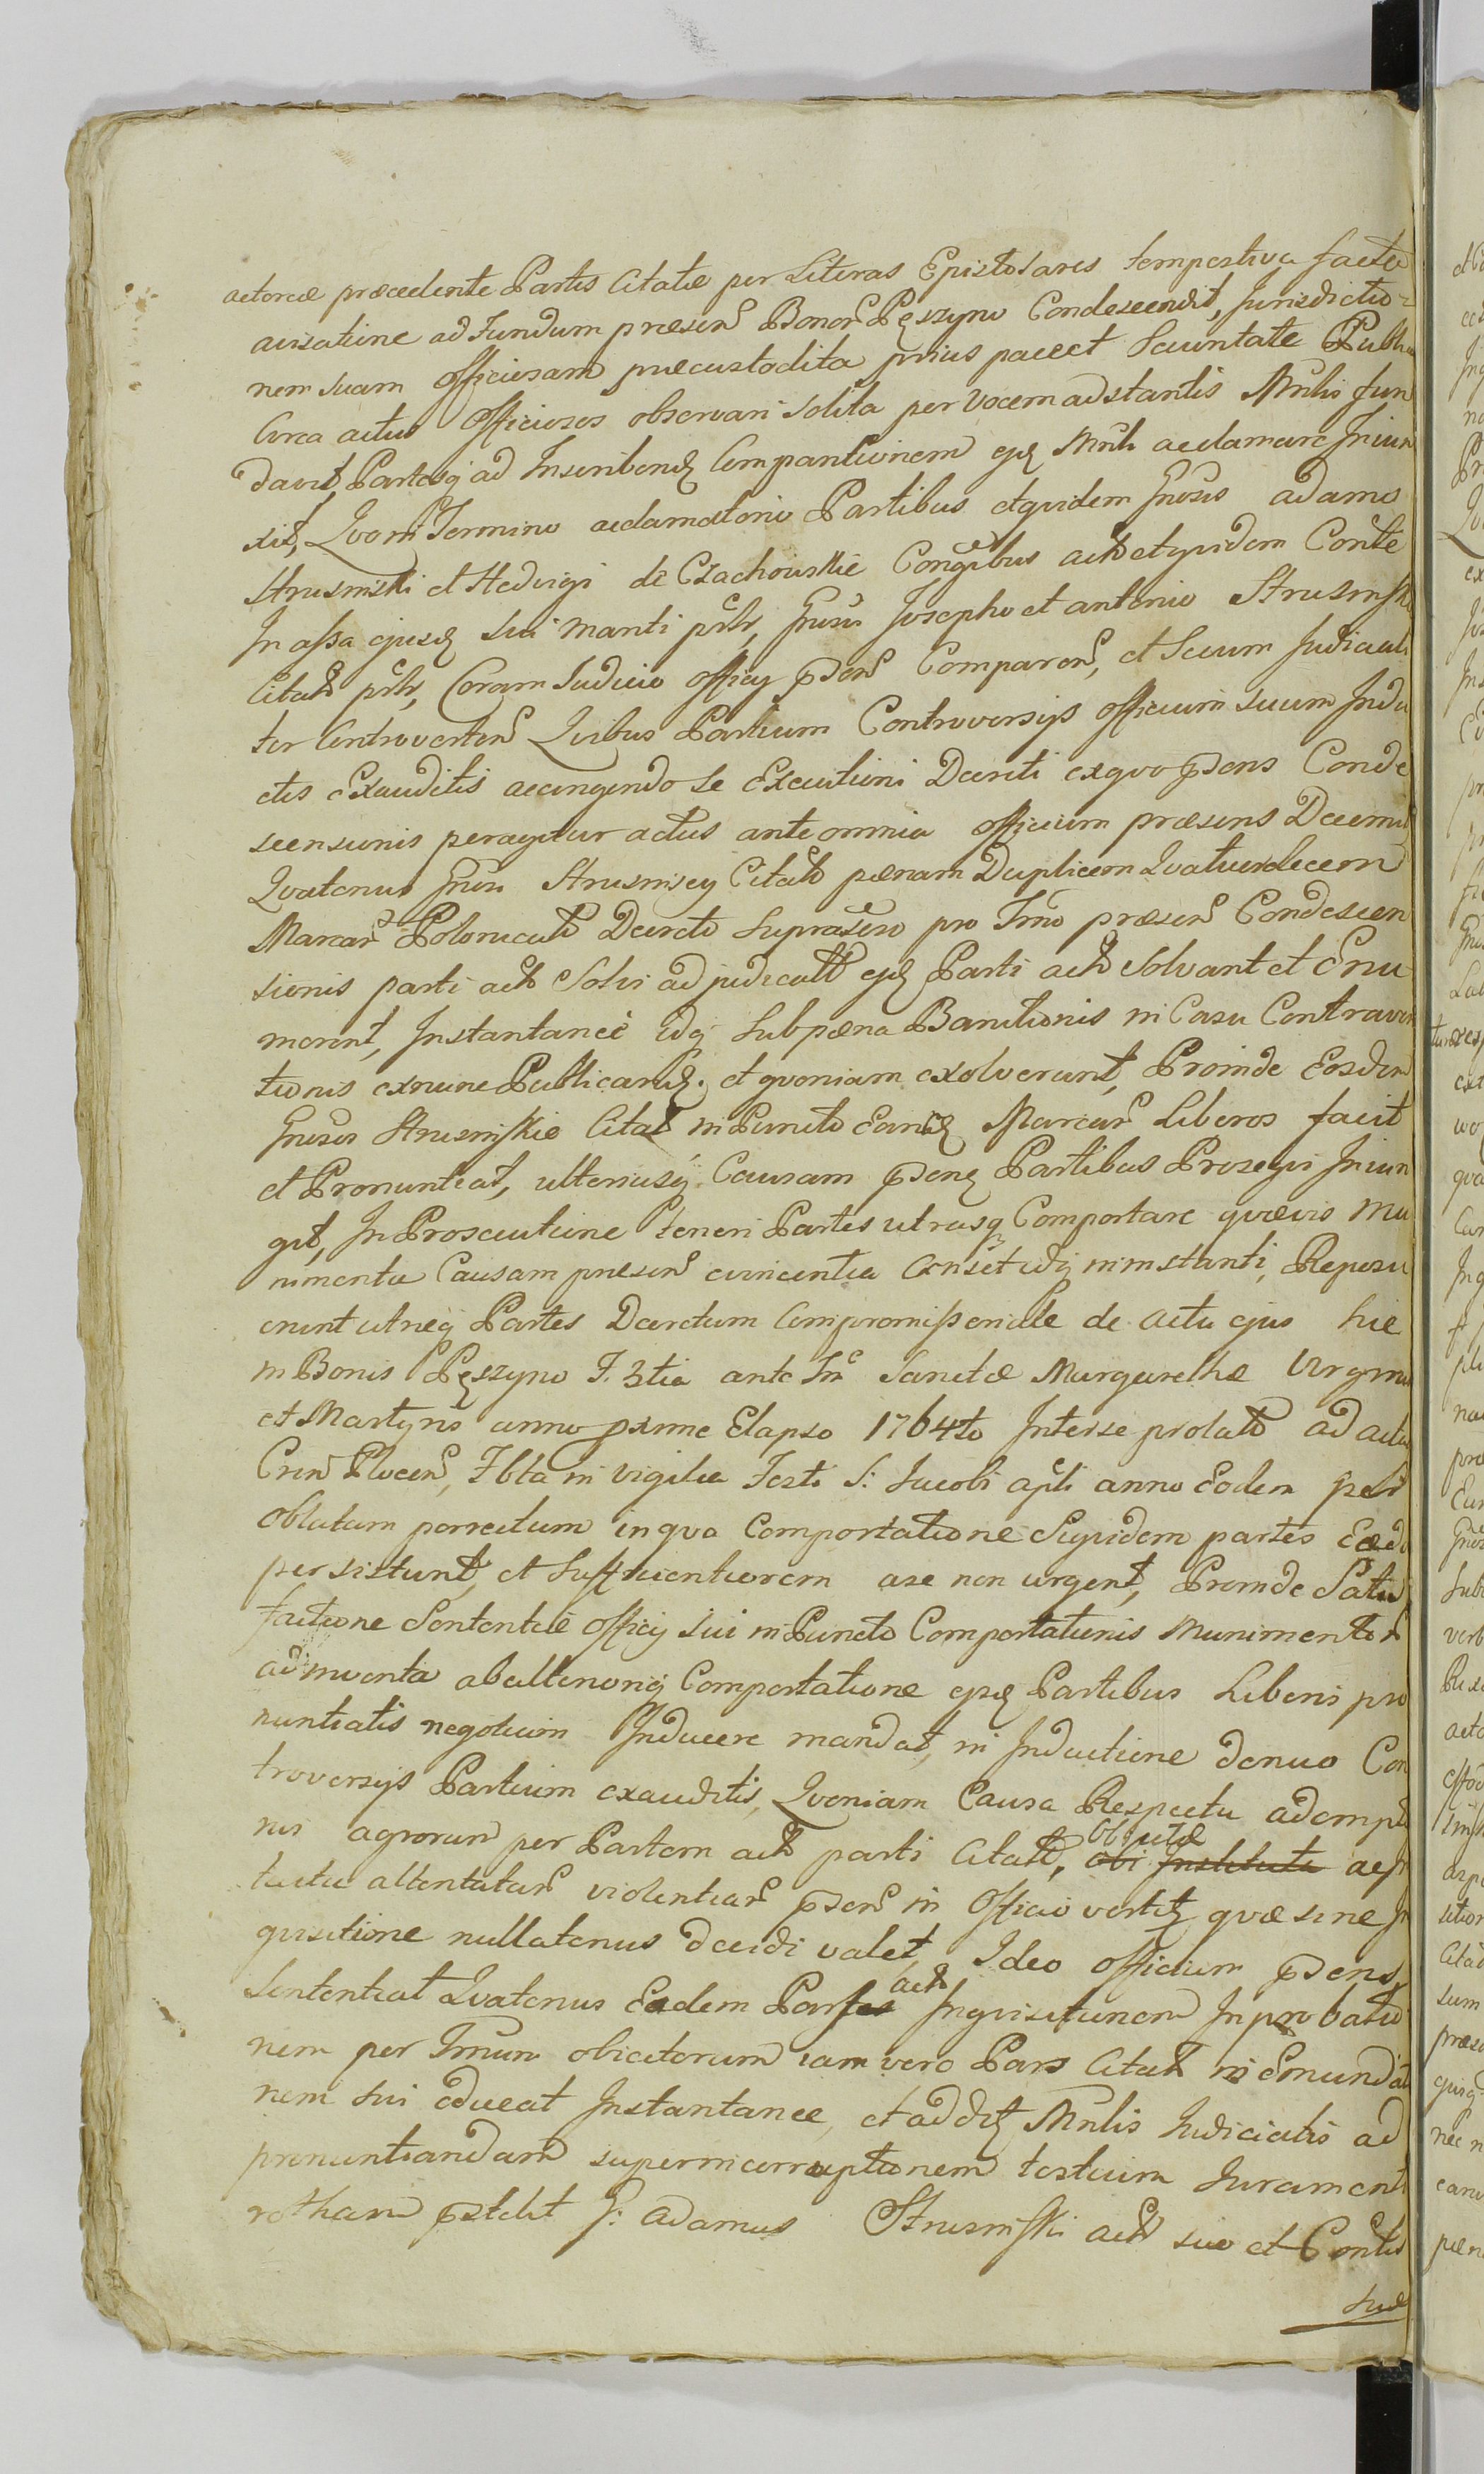 actoreæ præcedente Partis Citatæ per Literas Epistolares tempestiva facta
avisatione ad Fundum præsen Bonor Pęszyno Condescendit, Jurisdictio-
nem suam officiosam præcustodita prius pace et Securitate Publica
Circa actus Officiosos observari solita per Vocem adstantis Mnlis fun
davit, Partesq ad Inscribend Compartionem ejq Mnli acclamare Iniun
xit, Quom Termino acclamatorio Partibus et quidem Gnosis Adamo
Strusinski et Hedvigi de Czachowskie Congibus act et quidem Conte
In assa ejusq sui Mariti pntr, Gnosis Josepho et Antonio Strusinski
Citat pntr, Coram Judicio officy pden Comparen, et Secum Judiciali
ter Controverten Quibus Partium Controversijs officium suum Indu
ctis Exauditis accingendo se Executioni Decreti ex quo pdens Conde
scensionis peragitur actus ante omnia officium præsens Decernit
Quatenus Gnosi Strusinscy Citat pænam Duplicem Quatuordecem
Marcar Polonicat Decreto suprascro pro Trno præsen Condescen
sionis parti act Solvi adjudicat ejq Parti act Solvant et Enu
merent, Instantanee idq sub pæna Banitionis in Casu Contraven
tionis exnunc Publicand. et quoniam exolverunt, Proinde Eosdem
Gnosos Strusinskie Citat in Puncto Earud Marcar Liberos facit
et Pronuntiat, ulteriusq Causam pdenq Partibus Prosequi Iniun
git, In Prosecutione teneri Partes utrasq Comportare quævis Mu
nimenta Causam præsen evincentia Censet idq in instanti, Reposu
erunt utræq Partes Decretum Compromissoriale de actu ejus hic
in Bonis Pęszyno F. 3tia ante Fn Sanctæ Margarethæ Virginis
et Martyris anno pxime Elapso 1764to Inter se prolat ad acta
Cren Plocen, Fbta in vigilia Festi S: Jacobi apli anno Eodem per
Oblatam porrectum in qua Comportatione Siquidem partes Eæd
persistunt, et Sufficientiorem a se non urgent, Proinde Satis
factione Sententiæ officij sui in Puncto Comportationis Munimentor
adinventa ab alterioriq Comportatione ejsq Partibus Liberis pro
nuntiatis negotium Inducere mandat, in Inductione denuo Con
troversijs Partium exauditis, Quoniam Causa Respectu adempti
nis agrorum per Partem act parti Citat, obi Institute obiectæ ac
tactu attentatar violentiar pden in Officio vertitq quæ sine In
quisitione nullatenus decidi valet, Ideo officium pdens,
Sententiat Quatenus Eadem Pars act Inquisitionem In probatio
nem per Trnum obiectorum iam vero Pars Citat in Emundatio
nem sui educat Instantanee, et additq Mnlis Judicialis ad
pronuntiandam super incorruptionem testium Jurament
rotham pstitit G: Adamus Strusinski act suo et Contis
suæ